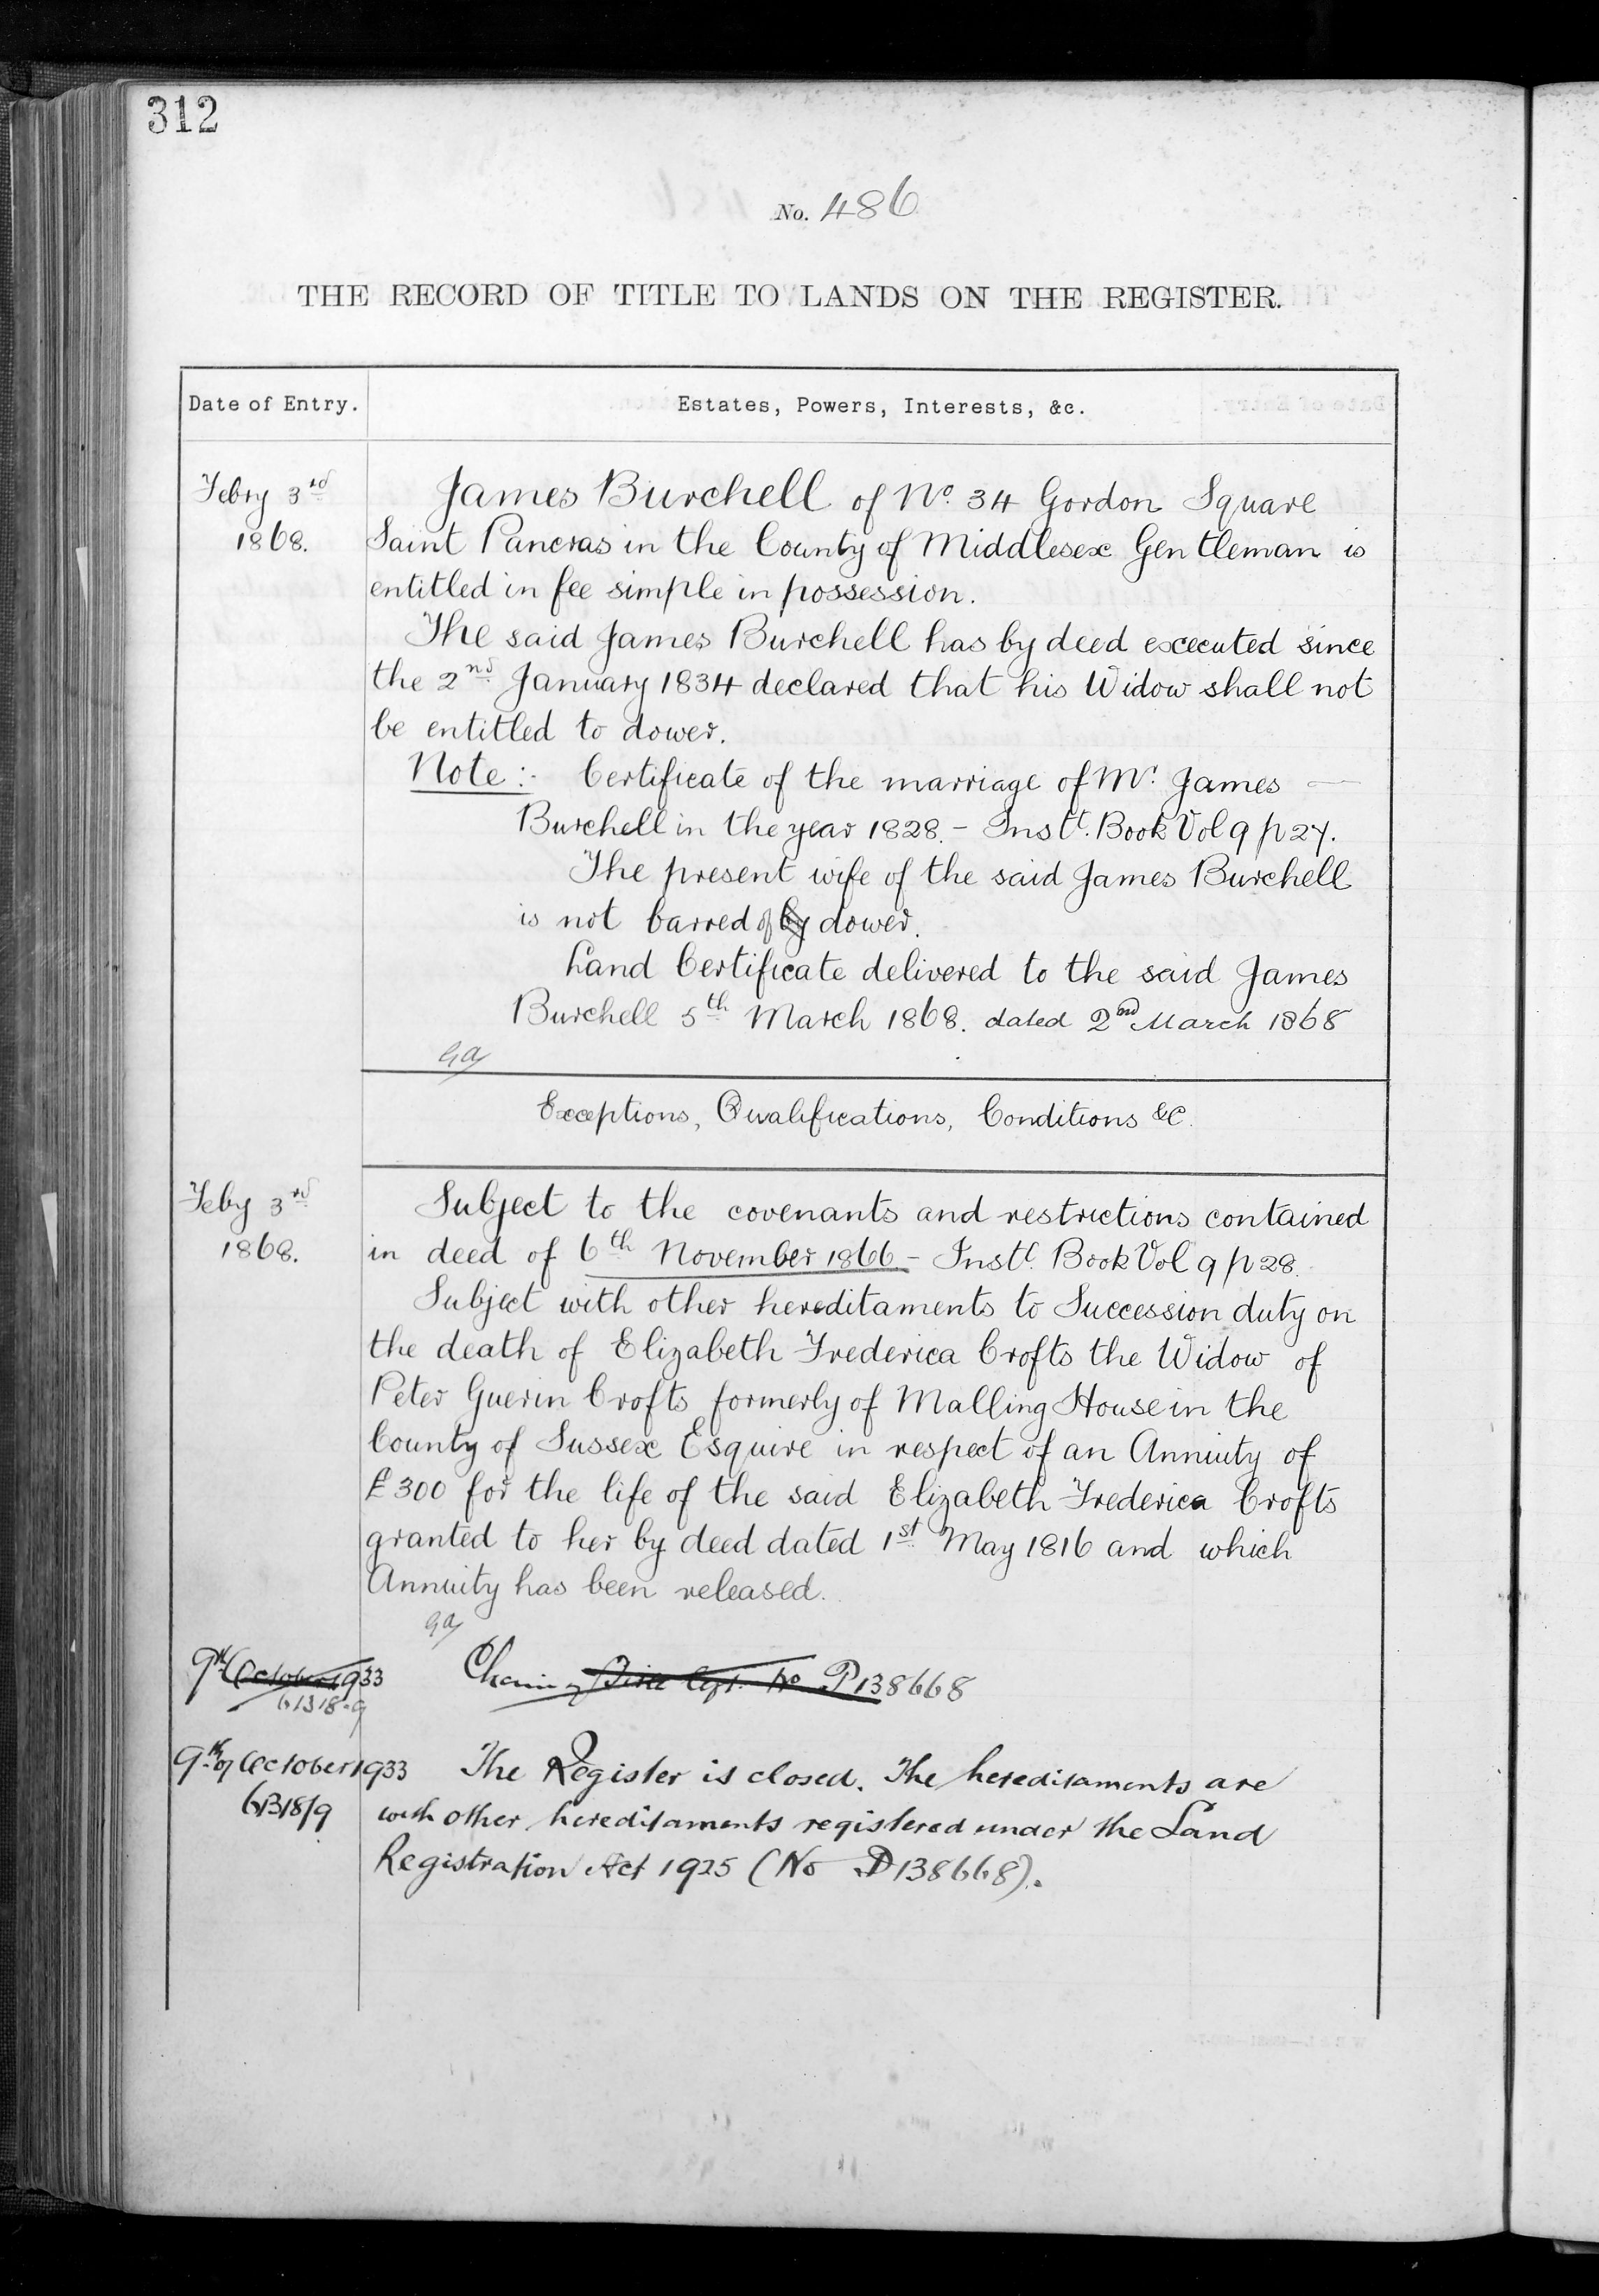 312
No. 486
THE RECORD OF TITLE TO LANDS ON THE REGISTER.
Date of Entry.
Estates, Powers, Interests, &c.
Febry 3rd
1868.
James Burchell of No. 34 Gordon Square
Saint Pancras in the County of Middlesex Gentleman is
entitled in fee simple in possession.
The said James Burchell has by deed executed since
the 2nd January 1834 declared that his Widow shall not
be entitled to dower.
Note:- Certificate of the marriage of Mr. James —
Burchell in the year 1828. - Instt. Book Vol 9 p 27.
The present wife of the said James Burchell
is not barred of by dower.
Land Certificate delivered to the said James
Burchell 5th March 1868. dated 2nd March 1868
Exceptions, Qualifications, Conditions &c.
Feby 3rd
1868.
Subject to the covenants and restrictions contained
in deed of 6th November 1866 - Instt. Book Vol 9 p 28.
Subject with other hereditaments to Succession duty on
the death of Elizabeth Frederica Crofts the Widow of
Peter Guerin Crofts formerly of Malling House in the
County of Sussex Esquire in respect of an Annuity of
£300 for the life of the said Elizabeth Frederica Crofts
granted to her by deed dated 1st May 1816 and which
Annuity has been released.
9th October 1933
P138668
9th of October 1933
The Register is closed. The hereditaments are
with other hereditaments registered under the Land
Registration Act 1925 (No P138668).